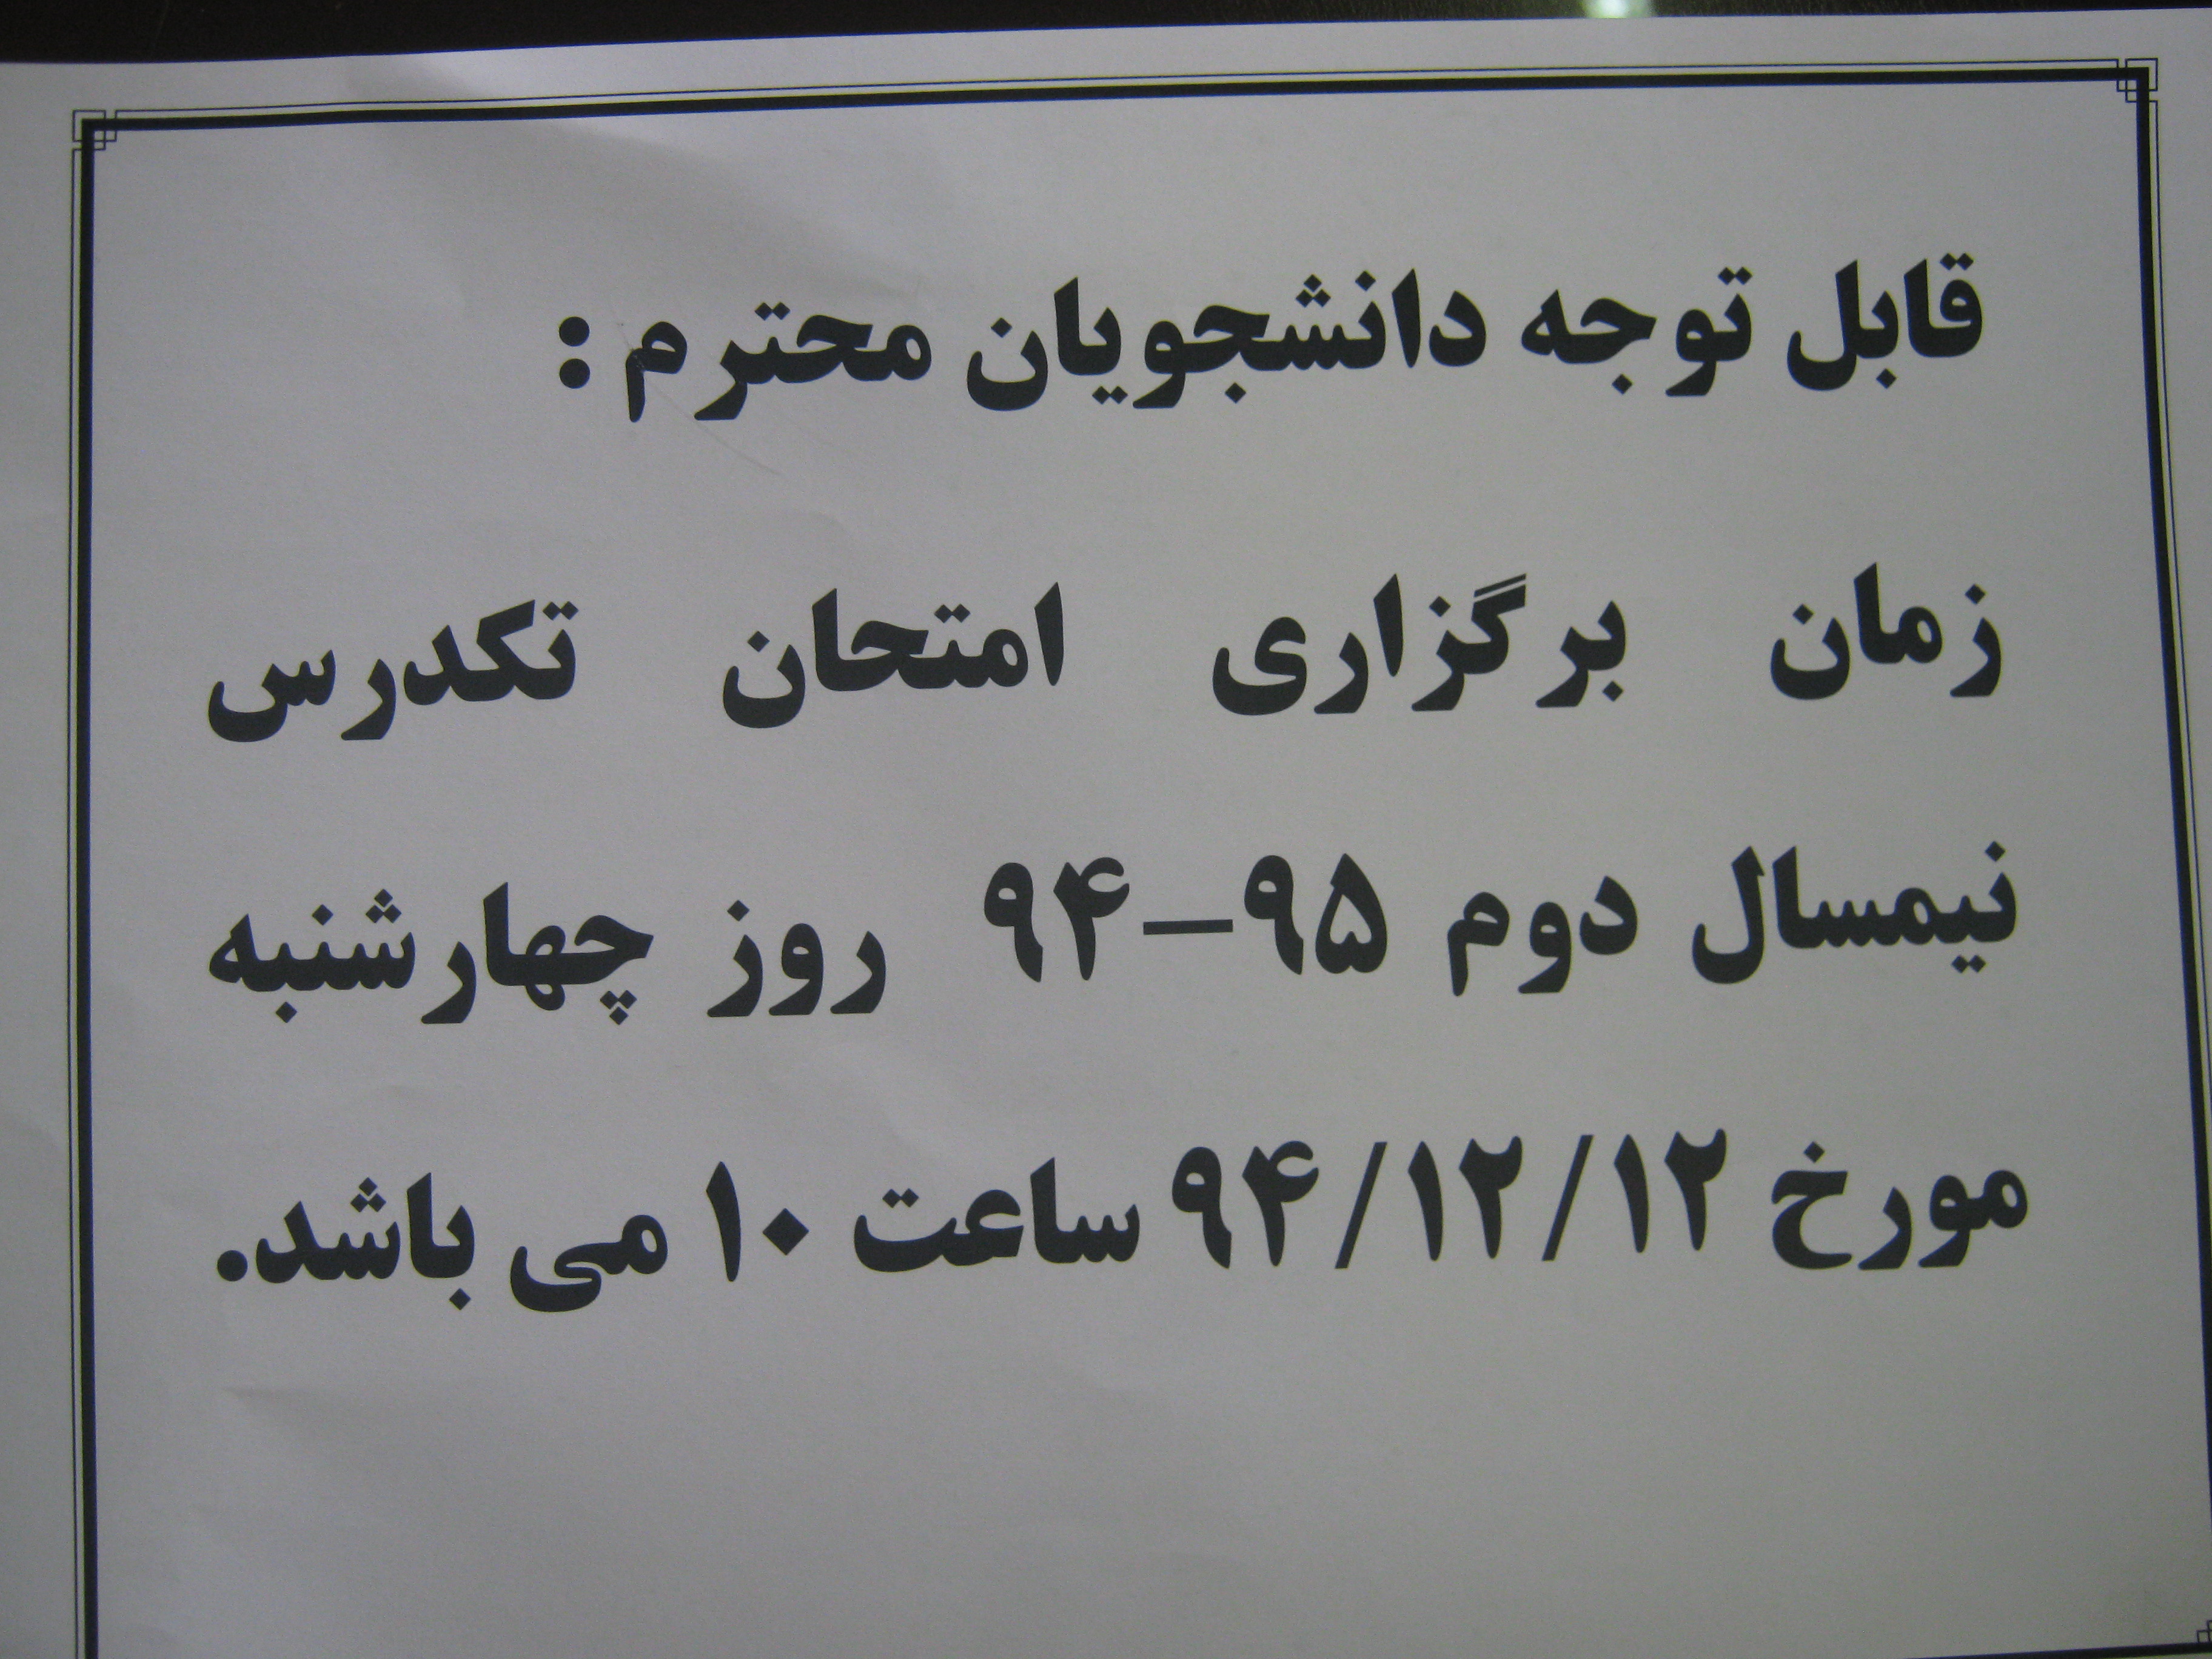 قابل توجه دانشجویان محترم :
زمان برگزاری امتحان تکدرس
نیمسال دوم ۹۵-۹۴ روز چهارشنبه
مورخ ۹۴/۱۲/۱۲ ساعت ۱۰ می باشد.